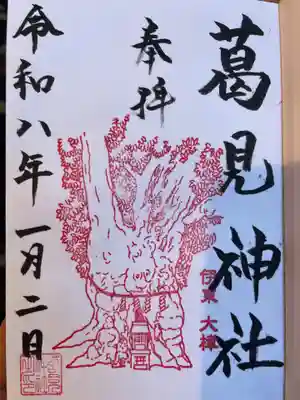 葛見神社
伊東 大樟
奉拝
令和八年一月二日